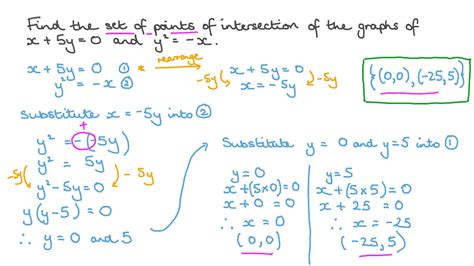 Find the set of points of intersection of the graphs of
x + 5y = 0 and y² = -x.
x + 5y = 0 ①
y² = -x ②
rearrange
-5y x + 5y = 0 -5y
x = -5y
{(0,0), (-25,5)}
Substitute x = -5y into ②
+
y² = -(-5y)
y² = 5y
-5y -5y
y² - 5y = 0
y(y-5) = 0
∴ y = 0 and 5
Substitute y = 0 and y=5 into ①
y=0
x + (5×0) = 0
x + 0 = 0
∴ x = 0
(0,0)
y=5
x + (5×5) = 0
x + 25 = 0
∴ x = -25
(-25,5)